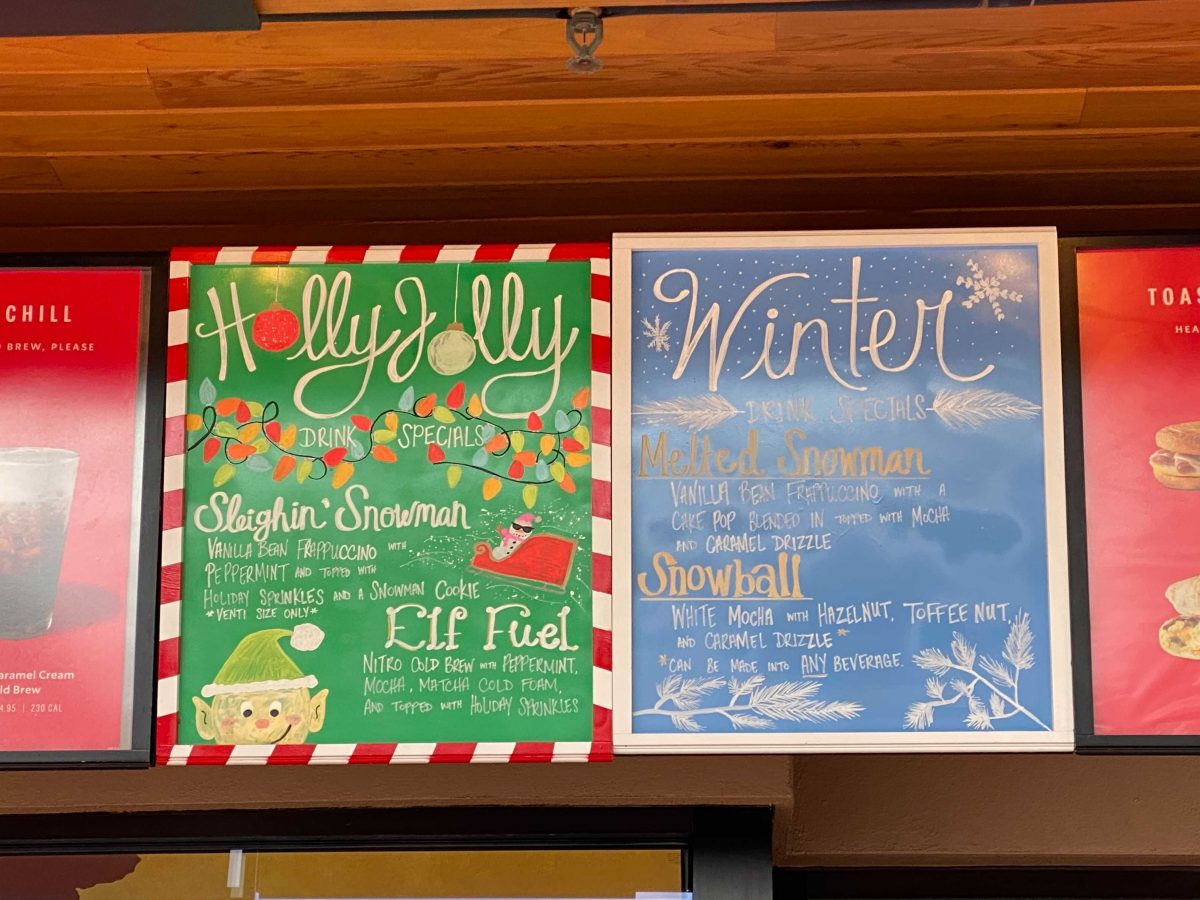 CHILL
BREW, PLEASE
aramel Cream
ld Brew
4.95 | 230 CAL
Holly Jolly
DRINK SPECIALS
Sleighin' Snowman
VANILLA BEAN FRAPPUCCINO WITH
PEPPERMINT AND TOPPED WITH
HOLIDAY SPRINKLES AND A SNOWMAN COOKIE
*VENTI SIZE ONLY*
Elf Fuel
NITRO COLD BREW WITH PEPPERMINT,
MOCHA, MATCHA COLD FOAM,
AND TOPPED WITH HOLIDAY SPRINKLES
Winter
DRINK SPECIALS
Melted Snowman
VANILLA BEAN FRAPPUCCINO WITH A
CAKE POP BLENDED IN TOPPED WITH MOCHA
AND CARAMEL DRIZZLE
Snowball
WHITE MOCHA WITH HAZELNUT, TOFFEE NUT,
AND CARAMEL DRIZZLE*
*CAN BE MADE INTO ANY BEVERAGE.
TOAS
HEA